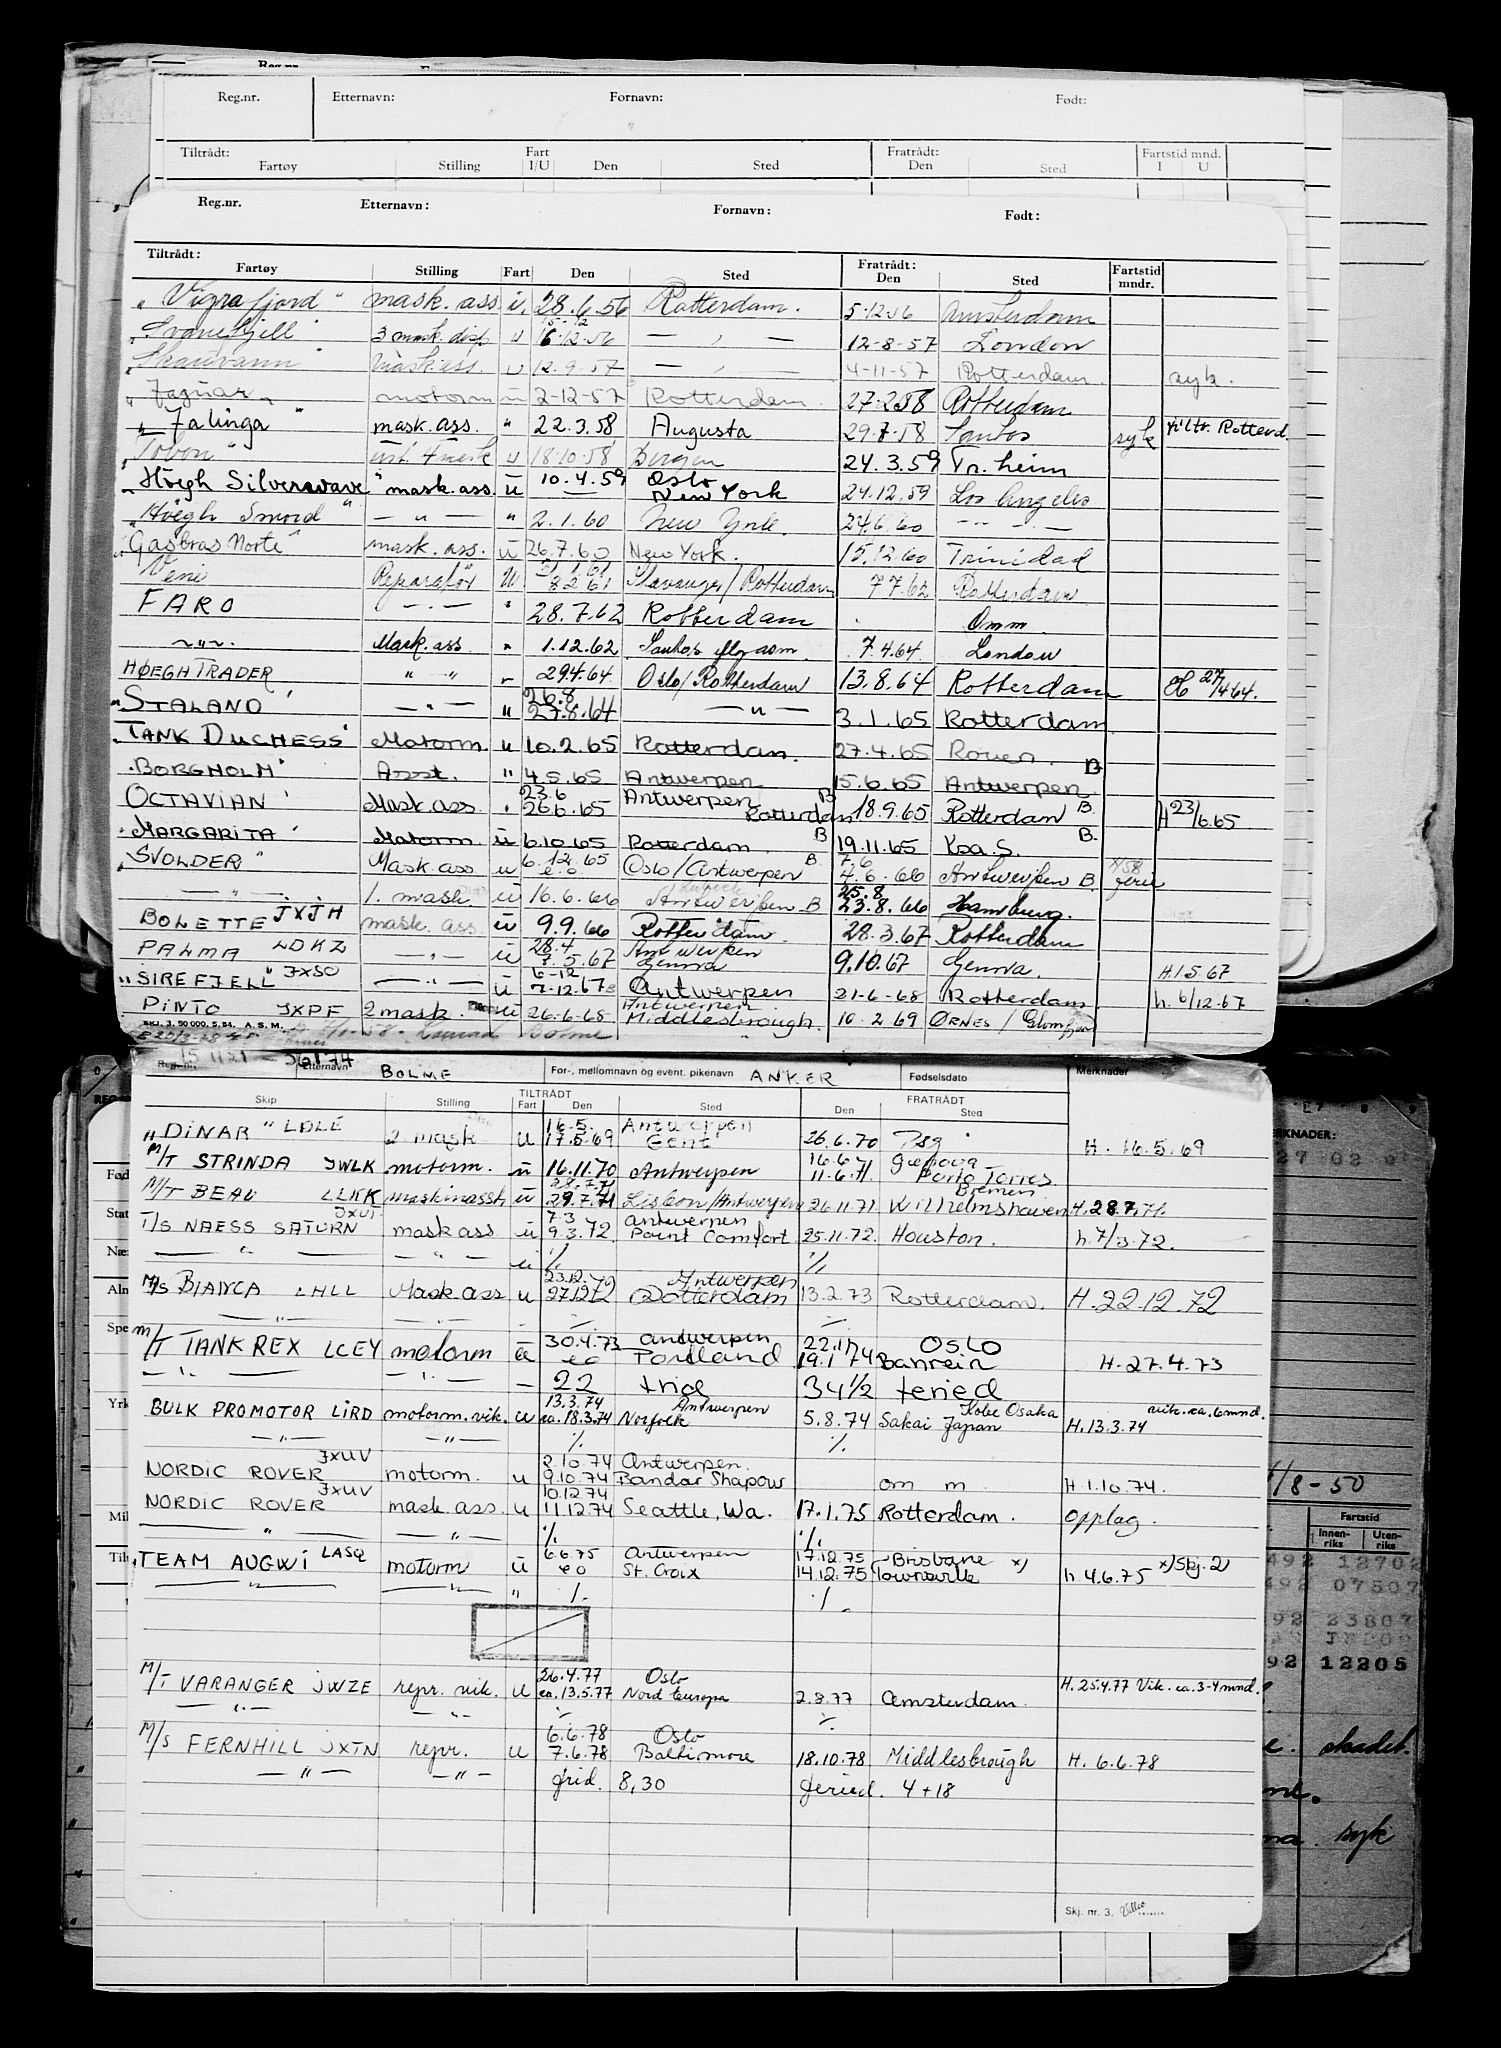 Reg.nr. Etternavn: Fornavn: Født:
Tiltrådt: Fratrådt: Fartstid mnd.
Fartøy Stilling Fart I/U Den Sted Den Sted I U
Reg.nr. Etternavn: Fornavn: Født:
Tiltrådt: Fratrådt: Fartstid mndr.
Fartøy Stilling Fart Den Sted Den Sted
"Vigrafjord" mask. ass. u. 28.6.56 Rotterdam. 5.12.56 Amsterdam
"Svanefjell 3 mask. disp u 15.12 16.12.56 — " — 12-8-57 London
"Skauvann" mask. ass. u 12.9.57 — " — 4-11-57 Rotterdam. syk.
"Jaguar" motorm u 2-12-57 Rotterdam 27.2.58 Rotterdam
"Jalinga" mask. ass. " 22.3.58 Augusta 29.7.58 Santos syk Rotterd.
"Tobon" u 18.10.58 Bergen 24.3.59 Tr. heim
"Høegh Silverwave" mask. ass. u 10.4.59 Oslo New York 24.12.59 Los Angeles
"Høegh Sword" — " — " 2.1.60 New York 24.6.60 — " —
"Gasbras Norte" mask. ass. u 26.7.60 New York. 15.12.60 Trinidad
Veni Reparatør U 8.2.61 Stavanger/Rotterdam 7.7.62 Rotterdam
FARO — " — " 28.7.62 Rotterdam Omm.
— " — Mask. ass " 1.12.62 Santos 7.4.64 London
HØEGH TRADER " " " 29.4.64 Oslo/Rotterdam 13.8.64 Rotterdam H 27/4 64.
"STALAND" — " — " 26.8. 27.8.64 — " — 3.1.65 Rotterdam
"TANK DUCHESS" Motorm. u 10.2.65 Rotterdam. 27.4.65 Rouen.
"BORGHOLM" Asst. " 4.5.65 Antwerpen B 15.6.65 Antwerpen
"OCTAVIAN" Mask ass. " 23.6 26.6.65 Antwerpen B Rotterdam 18.9.65 Rotterdam B. H 23/6.65
"MARGARITA" Motorm. u 6.10.65 Rotterdam B 19.11.65 Koa. S. B.
"SVOLDER" Mask ass u 6.12.65 e.o Oslo/Antwerpen B. 7.6 4.6.66 Antwerpen B. ferie
— " — 1. mask u 16.6.66 Antwerpen B 25.8 23.8.66 Hamburg.
BOLETTE JXJH mask. ass u 9.9.66 Rotterdam. 28.3.67 Rotterdam
PALMA LDKZ — " — u 28.4 7.5.67 Antwerpen Genova 9.10.67 Genova. H.1.5.67
"SIREFJELL" JXSO — " — u 6-12 7-12.67 Antwerpen 21-6-68 Rotterdam h. 6/12.67
PINTO JXPF 2 mask. u 26.6.68 Antwerpen Middlesbrough. 16.2.69 ØRNES / Glomfjord
SKJ. 3. 50 000. 5. 54. A. S. M.
15 1121 - 36174
Reg.nr. Etternavn BOLME For-, mellomnavn og event. pikenavn ANKER Fødselsdato Merknader
TILTRÅDT FRATRÅDT
Skip Stilling Fart Den Sted Den Sted
"DINAR" LDLE 2 mask u 16.5. 17.5.69 Antwerpen Gent 26.6.70 Psg. H. 16.5.69
M/T STRINDA JWLK motorm. u 16.11.70 Antwerpen 16.6. 11.6.71 Genova Porto Torres
M/T BEAU LLKK maskinasst. u 28.7.71 29.7.71 Lisbon/Antwerpen 26.11.71 Bremen Wilhelmshaven H. 28.7.71.
T/S NAESS SATURN JXUT mask ass u 7.3 9.3.72. Antwerpen Point Comfort 25.11.72. Houston. h. 7/3.72.
— " — — " — u ·/. ·/.
M/S BIANCA LHLL Mask. ass u 23.12.72 27.12.72 Antwerpen Rotterdam 13.2.73 Rotterdam. H. 22.12.72
— " — — " —
M/T TANK REX LCEY motorm u 30.4.73 eo Antwerpen Portland 22.1. 19.1.74 OSLO Bahrein H. 27.4.73
— " — — " — — 22 frid 34 1/2 feried
BULK PROMOTOR LIRD motorm. vik. u 13.3.74 ca. 18.3.74 Antwerpen Norfolk 5.8.74 Kobe Osaka Sakai Japan H. 13.3.74 vik. ca. 6 mnd.
— " — — " — ·/. ·/.
NORDIC ROVER JXUV motorm. u 2.10.74 9.10.74 Antwerpen. Bandar Shapour om m H 1.10.74.
NORDIC ROVER JXUV mask. ass. u 10.12.74 11.12.74 Seattle, Wa. 17.1.75 Rotterdam. opplag.
— " — — " — ·/. ·/.
TEAM AUGWI LASQ motorm u 6.6.75 eo Antwerpen St. Croix 17.12.75 14.12.75 Brisbane x) Townsville h 4.6.75 x) Skj. 2)
— " — — " — " ·/. ·/.
M/T VARANGER JWZE repr. vik. u 26.4.77 ca. 13.5.77 Oslo Nord Europa 2.8.77 Amsterdam. H. 25.4.77 Vik. ca. 3-4 mnd.
— " — — " — ·/. ·/.
M/S FERNHILL JXTN repr. u 6.6.78 7.6.78 Oslo Baltimore 18.10.78 Middlesbrough H. 6.6.78
— " — — " — frid. 8,30 feried. 4 + 18
Skj. nr. 3.
MERKNADER:
27 02
/8-50
Fartstid
Innenriks Utenriks
492 12702
492 07507
92 23807
92 12205
skadet.
syk